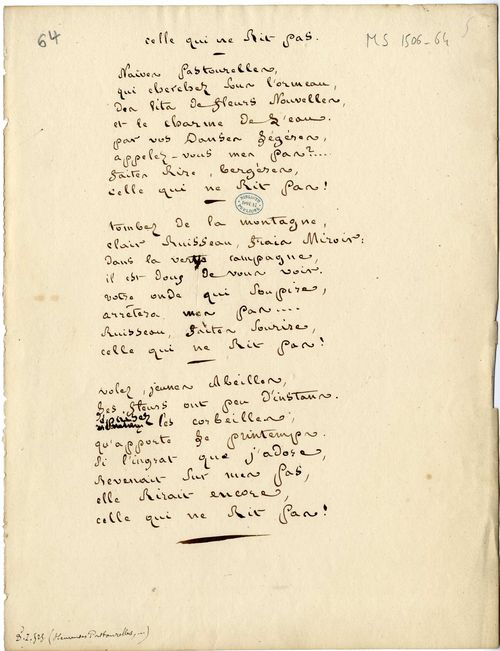 64
MS 1506-64
celle qui ne Rit pas.
Naives Pastourelles,
qui cherchez sous l'ormeau,
des lits de fleurs Nouvelles,
et le charme de l'eau.
par vos Danses légères,
appelez-vous mes pas?....
faites Rire, bergères,
celle qui ne Rit pas!
tombez de la montagne,
clair Ruisseau, frais Miroir:
dans la verte campagne,
il est doux de vous voir.
votre onde qui soupire,
arrêtera mes pas....
Ruisseau, faites sourire,
celle qui ne Rit pas!
volez, jeunes Abeilles,
les fleurs ont peu d'instans.
épuisez les corbeilles,
qu'apporte le printemps.
Si l'ingrat que j'adore,
Revenait sur mes pas,
elle Rirait encore,
celle qui ne Rit pas!